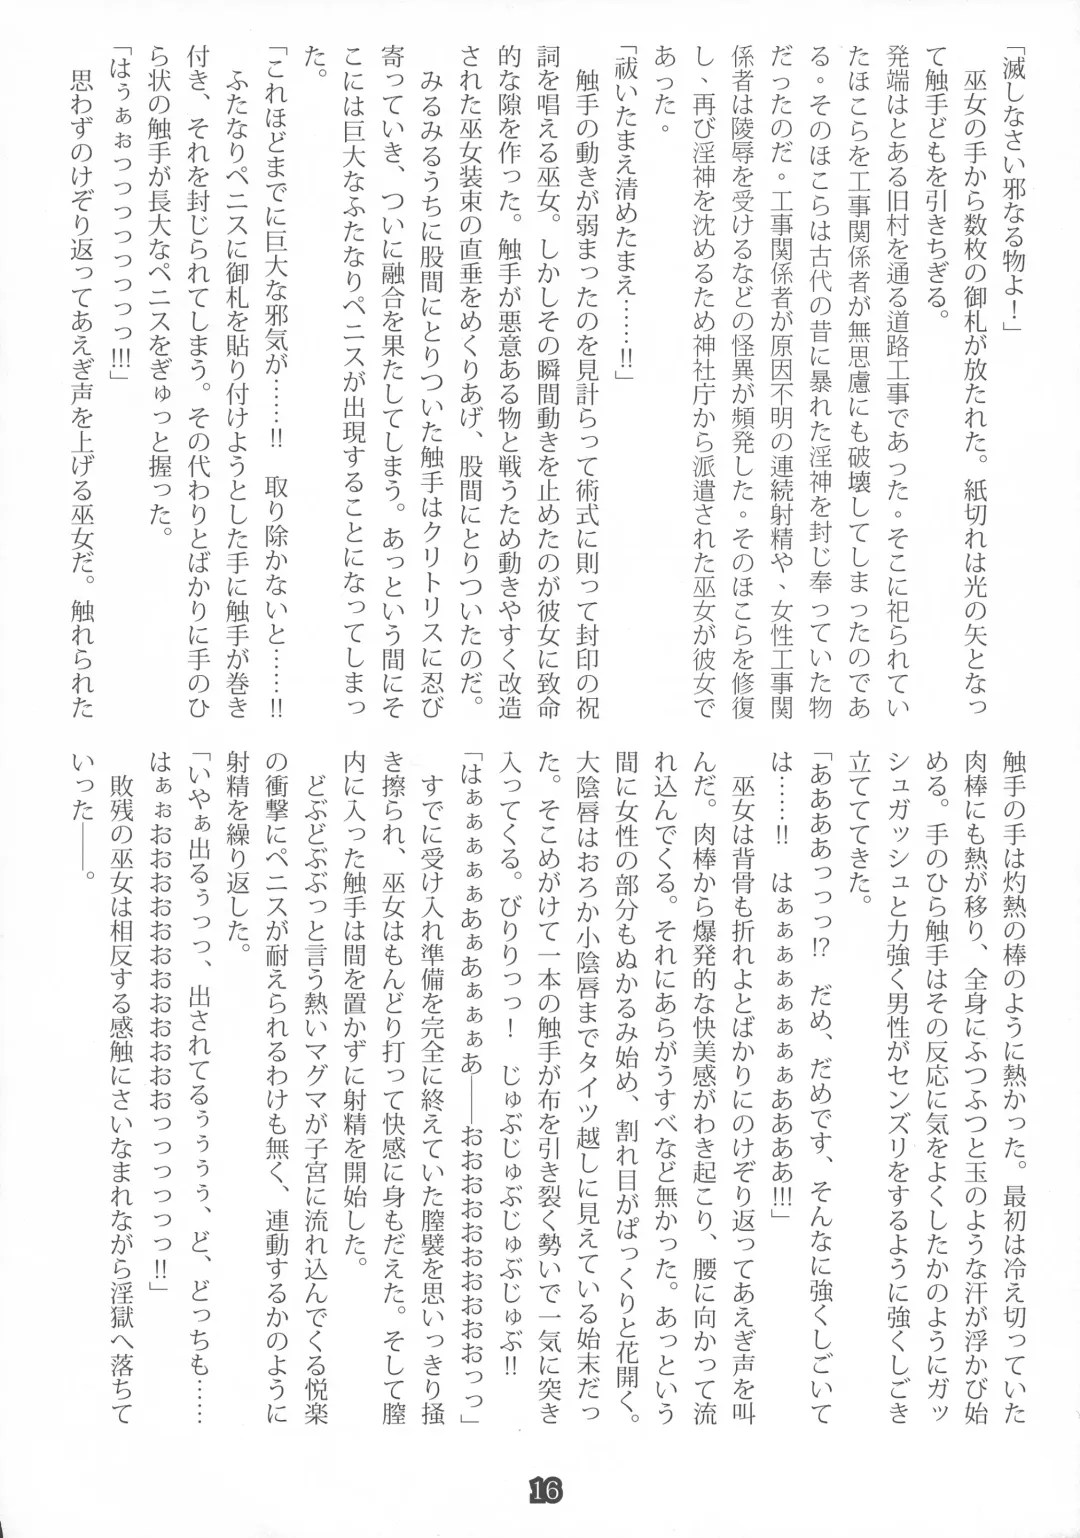 「滅しなさい邪なる物よ！」
巫女の手から数枚の御札が放たれた。紙切れは光の矢となっ
て触手どもを引きちぎる。
発端はとある旧村を通る道路工事であった。そこに祀られてい
たほこらを工事関係者が無思慮にも破壊してしまったのであ
る。そのほこらは古代の昔に暴れた淫神を封じ奉っていた物
だったのだ。工事関係者が原因不明の連続射精や、女性工事関
係者は陵辱を受けるなどの怪異が頻発した。そのほこらを修復
し、再び淫神を沈めるため神社庁から派遣された巫女が彼女で
あった。
「祓いたまえ清めたまえ……!!」
触手の動きが弱まったのを見計らって術式に則って封印の祝
詞を唱える巫女。しかしその瞬間動きを止めたのが彼女に致命
的な隙を作った。触手が悪意ある物と戦うため動きやすく改造
された巫女装束の直垂をめくりあげ、股間にとりついたのだ。
みるみるうちに股間にとりついた触手はクリトリスに忍び
寄っていき、ついに融合を果たしてしまう。あっという間にそ
こには巨大なふたなりペニスが出現することになってしまっ
た。
「これほどまでに巨大な邪気が……!!　取り除かないと……!!
ふたなりペニスに御札を貼り付けようとした手に触手が巻き
付き、それを封じられてしまう。その代わりとばかりに手のひ
ら状の触手が長大なペニスをぎゅっと握った。
「はうぁぉっっっっっっっ!!!」
思わずのけぞり返ってあえぎ声を上げる巫女だ。触れられた
触手の手は灼熱の棒のように熱かった。最初は冷え切っていた
肉棒にも熱が移り、全身にふつふつと玉のような汗が浮かび始
める。手のひら触手はその反応に気をよくしたかのようにガッ
シュガッシュと力強く男性がセンズリをするように強くしごき
立ててきた。
「ああああっっっ!?　だめ、だめです、そんなに強くしごいて
は……!!　はぁぁぁぁぁぁぁああああ!!!」
巫女は背骨も折れよとばかりにのけぞり返ってあえぎ声を叫
んだ。肉棒から爆発的な快美感がわき起こり、腰に向かって流
れ込んでくる。それにあらがうすべなど無かった。あっという
間に女性の部分もぬかるみ始め、割れ目がぱっくりと花開く。
大陰唇はおろか小陰唇までタイツ越しに見えている始末だっ
た。そこめがけて一本の触手が布を引き裂く勢いで一気に突き
入ってくる。びりりっっ！　じゅぶじゅぶじゅぶじゅぶ!!
「はぁぁぁぁぁあぁあぁぁぁあ――おおおおおおおおおおっっ」
すでに受け入れ準備を完全に終えていた膣襞を思いっきり掻
き擦られ、巫女はもんどり打って快感に身もだえた。そして膣
内に入った触手は間を置かずに射精を開始した。
どぶどぶぶっと言う熱いマグマが子宮に流れ込んでくる悦楽
の衝撃にペニスが耐えられるわけも無く、連動するかのように
射精を繰り返した。
「いやぁ出るぅっっ、出されてるぅぅぅぅ、ど、どっちも……
はぁぉおおおおおおおおおおおおおっっっっっっ!!」
敗残の巫女は相反する感触にさいなまれながら淫獄へ落ちて
いった――。
16